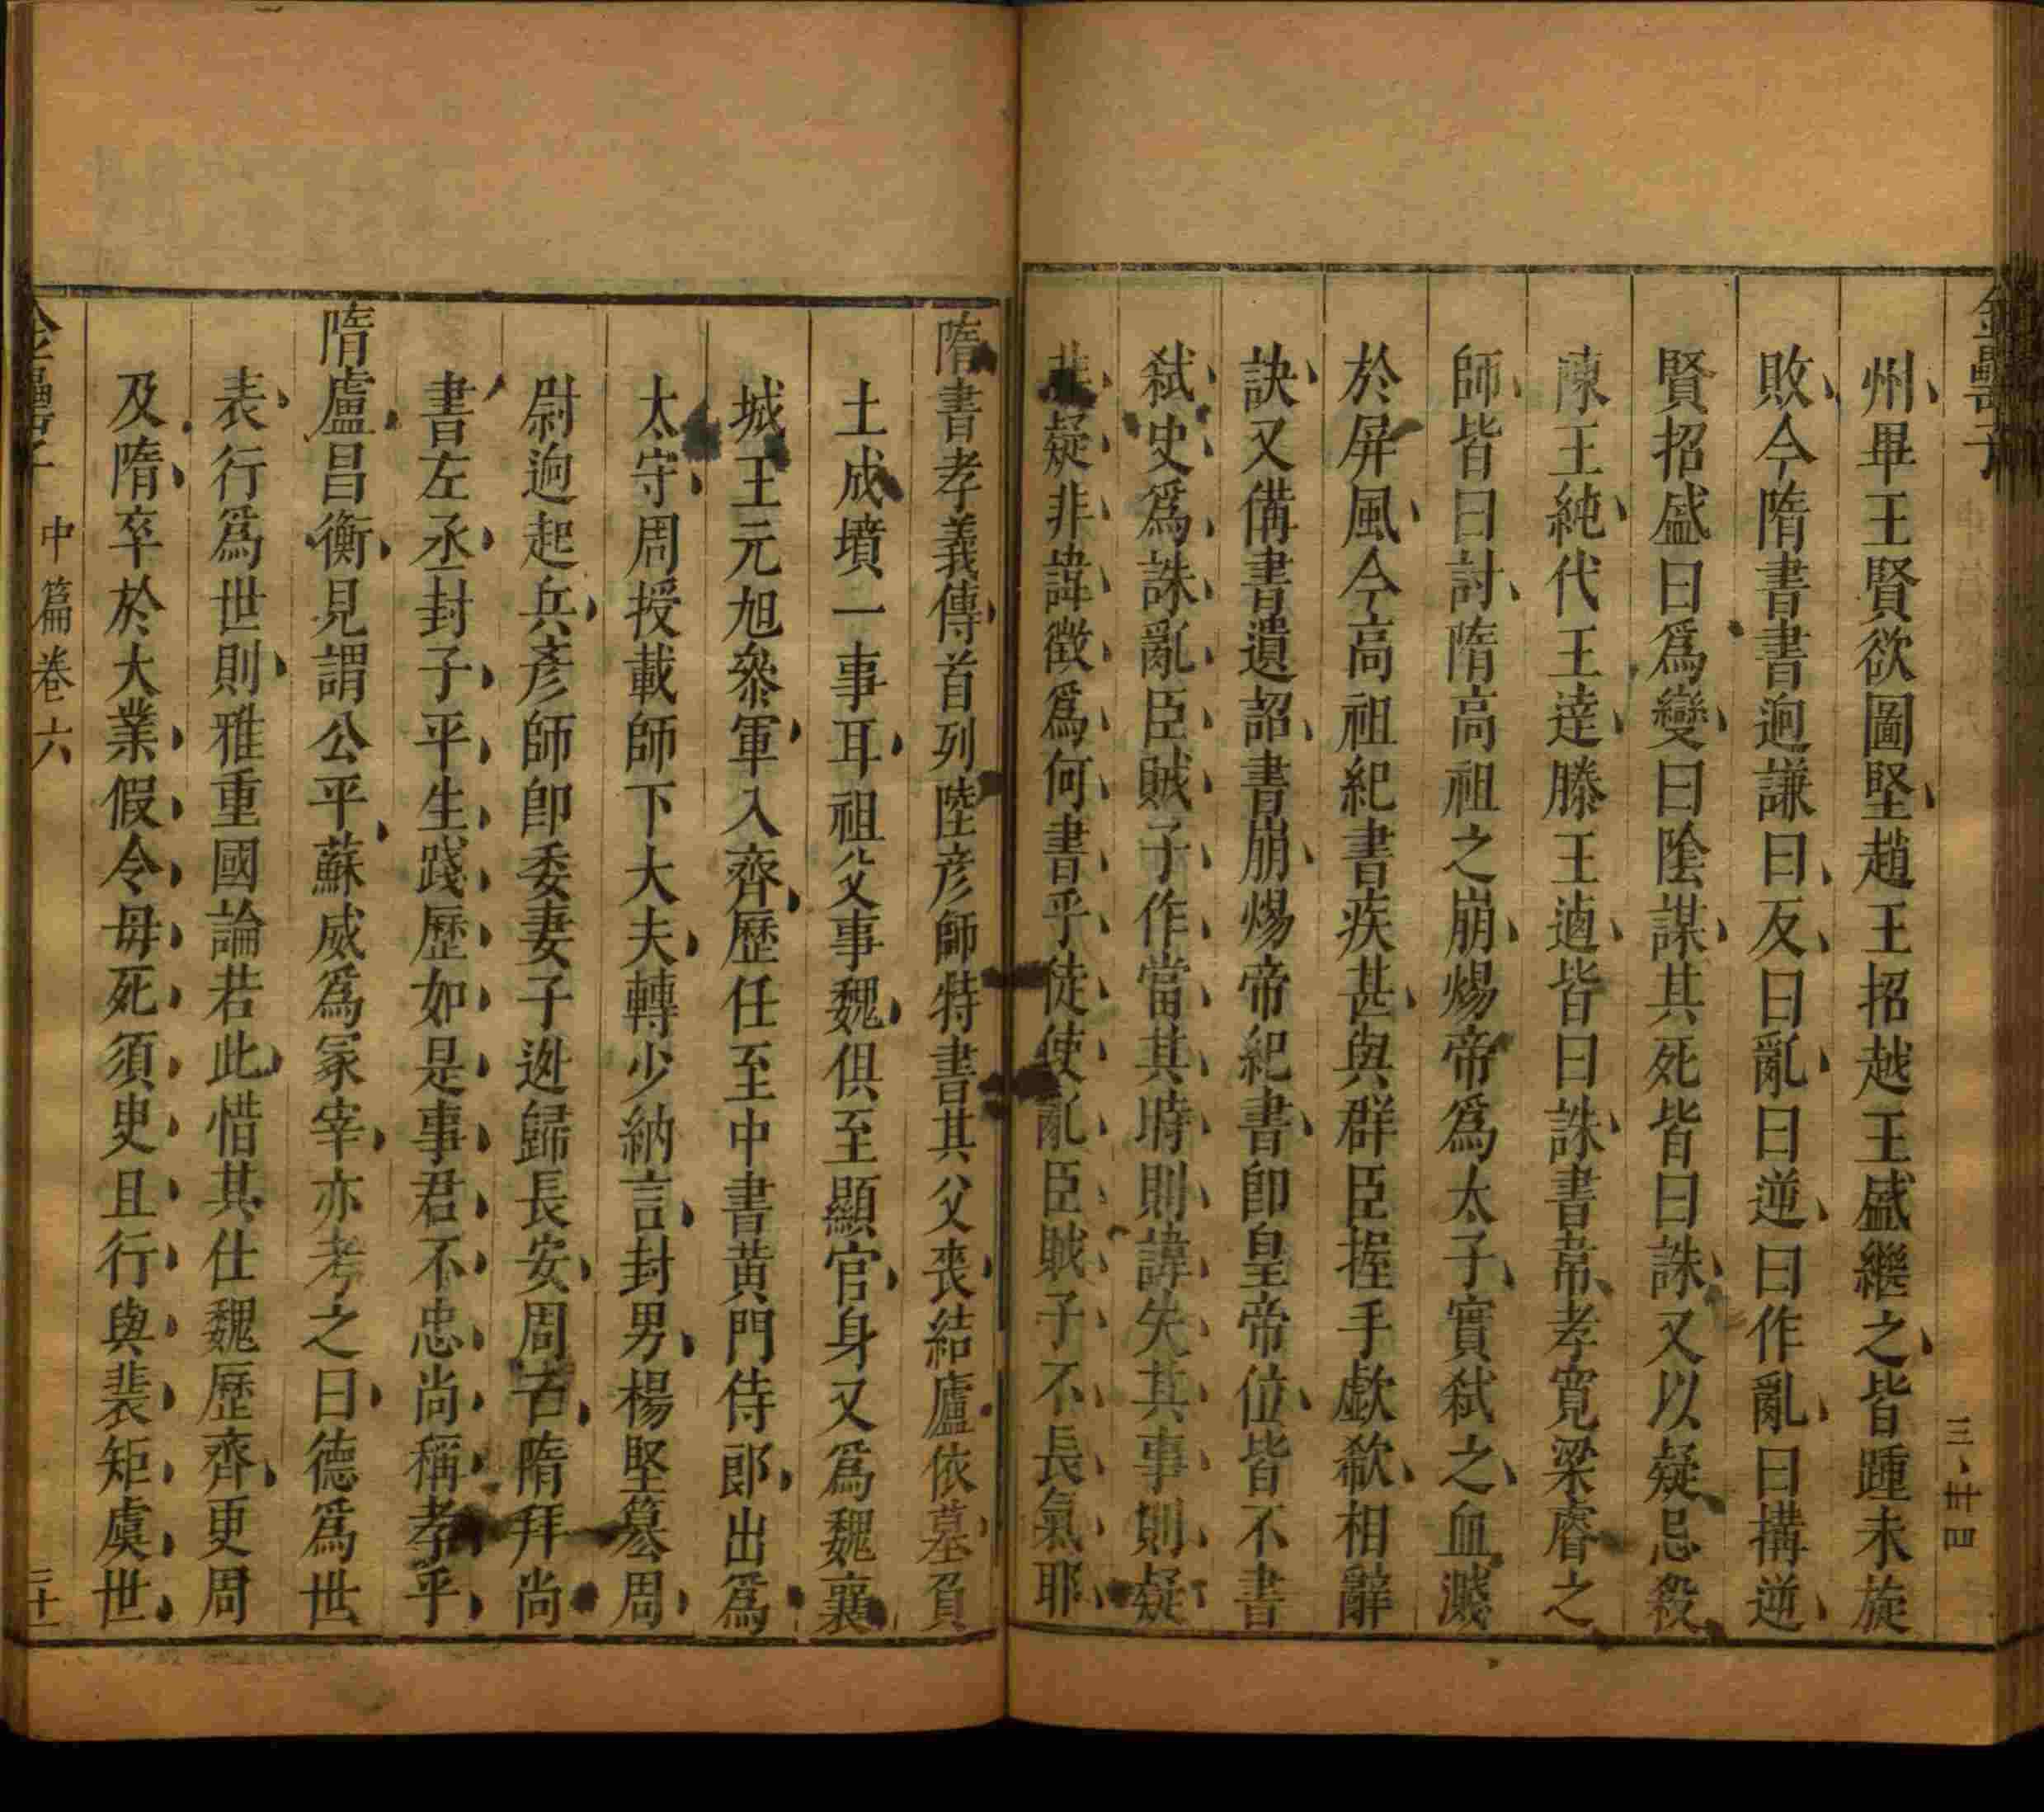 金罍子
州畢王賢欲圖堅趙王招越王盛繼之皆踵未旋
敗今隋書書逈謙曰反曰亂曰逆曰作亂曰搆逆
賢招盛曰爲變曰陰謀其死皆曰誅又以疑忌殺
陳王純代王達滕王逌皆曰誅書韋孝寛梁睿之
師皆曰討隋高祖之崩煬帝爲太子實弑之血濺
於屏風今高祖紀書疾甚與群臣握手歔欷相辭
訣又備書遺詔書崩煬帝紀書卽皇帝位皆不書
弑史爲誅亂臣賊子作當其時則諱失其事則疑
疑非諱徵爲何書乎徒使亂臣賊子不長氣耶
隋書孝義傳首列陸彦師特書其父喪結廬依墓負
土成墳一事耳祖父事魏俱至顯官身又爲魏襄
城王元旭叅軍入齊歷任至中書黄門侍郎出爲
太守周授載師下大夫轉少納言封男楊堅簒周
尉逈起兵彥師卽委妻子迯歸長安周者隋拜尚
書左丞封子平生踐歷如是事君不忠尚稱孝乎
隋盧昌衡見謂公平蘇威爲冢宰亦考之曰德爲世
表行爲世則雅重國論若此惜其仕魏歷齊更周
及隋卒於大業假令毋死須臾且行與裴矩虞世
中篇卷六